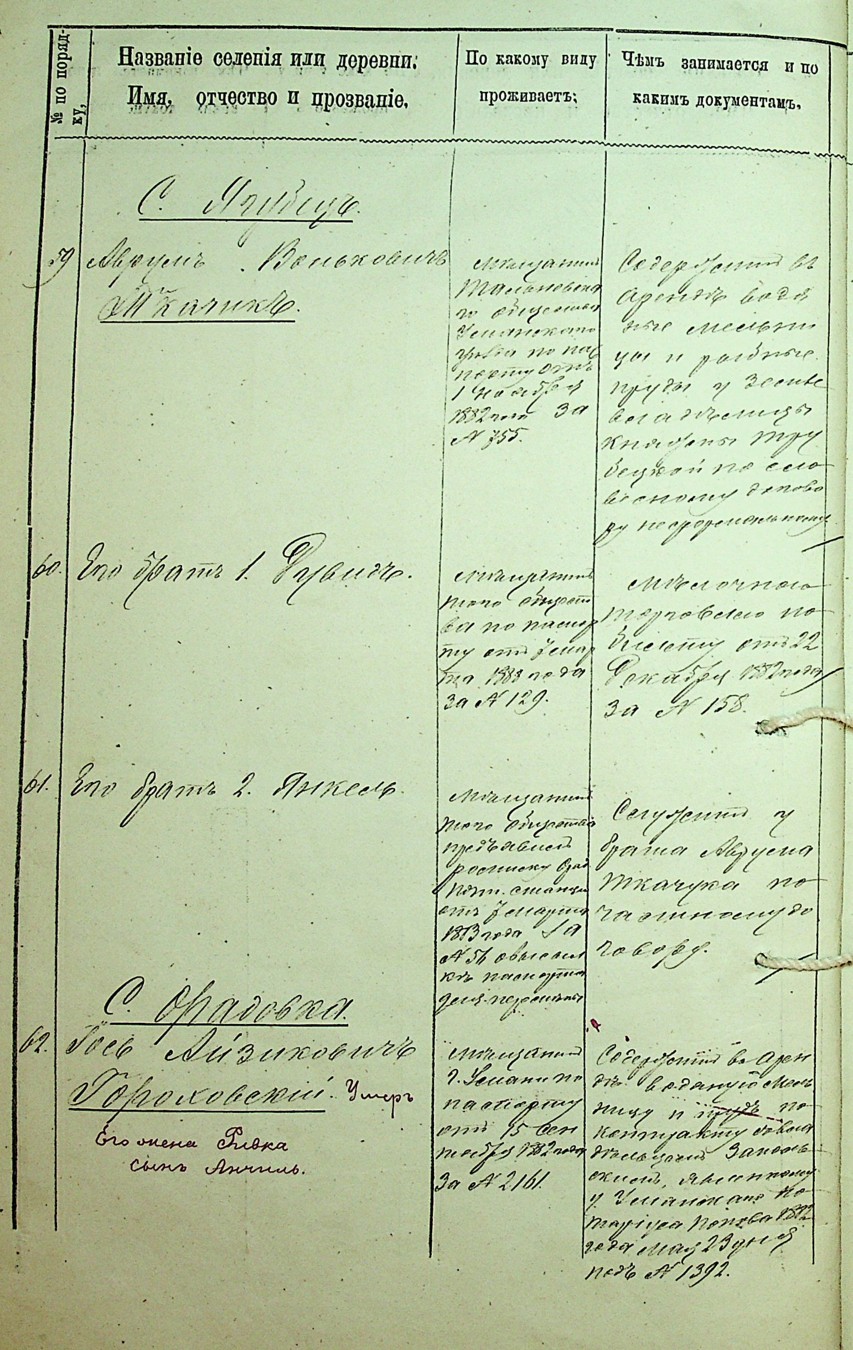 № по поряд-
ку,
Названіе селенія или деревни.
Имя, отчество и прозваніе.
По какому виду
проживаетъ:
Чѣмъ занимается и по
какимъ документамъ.
С. Ягубецъ.
59
Аврумъ Воньковичъ
Ткачикъ.
Мѣщанинъ
Тальновска
го общества
Уманскаго
уѣзда по пас
порту отъ
1 Ноября
1882 года за
№ 755.
Содержитъ въ
арендѣ водя
ные мельни
цы и рыбные
пруды у
владѣлицы
Княгини Тру
бецкой по сло
весному догово
ру
60.
Его братъ 1. Дувидъ.
Мѣщанинъ
того общест
ва по паспор
ту отъ 7 мар
та 1883 года
за № 129.
Мѣлочною
торговлею по
билету отъ 22
Декабря 1882 года
за № 158.
61.
Его братъ 2. Янкель.
Мѣщанинъ
того общества
предъявилъ
росписку
почт. станціи
отъ 7 марта
1883 года за
№ 56 о высыл
кѣ паспорта
для перемѣны
Служитъ у
брата Аврума
Ткачука по
частному до
говору.
С. Орадовка.
62.
Гось Айзиковичъ
Гороховскій. Умеръ
Его жена Ривка
сынъ Анчиль.
Мѣщанинъ
г. Умани по
паспорту
отъ 15 Сен
тября 1882 года
за № 2161.
Содержитъ въ арен
дѣ водяную мель
ницу и прудъ по
контракту съ вла
дѣльцемъ
явленному
у Уманскаго но
таріуса Попова 1882
года мая 23 дня
подъ № 1392.